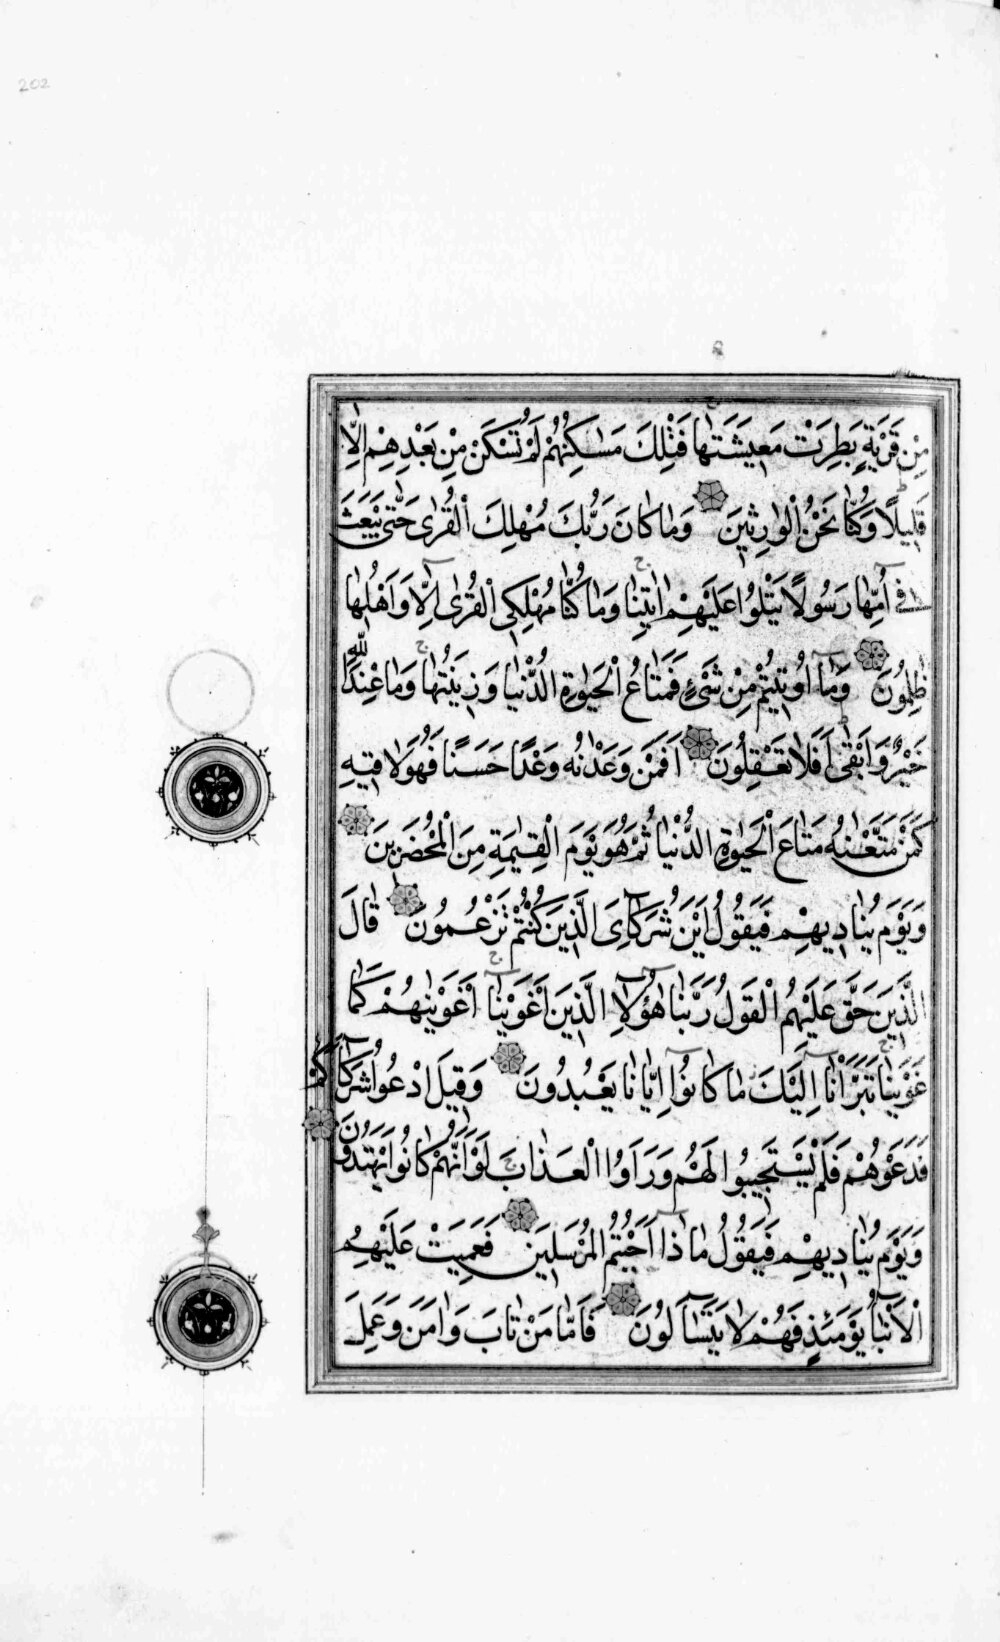 202
مِنْ قَرْيَةٍ بَطِرَتْ مَعِيشَتَهَا فَتِلْكَ مَسٰكِنُهُمْ لَمْ تُسْكَنْ مِنْ بَعْدِهِمْ اِلَّا
قَلِيلًا وَكُنَّا نَحْنُ الْوَارِثِينَ وَمَا كَانَ رَبُّكَ مُهْلِكَ الْقُرٰى حَتّٰى يَبْعَثَ
فِى اُمِّهَا رَسُولًا يَتْلُوا عَلَيْهِمْ اٰيَاتِنَا وَمَا كُنَّا مُهْلِكِى الْقُرٰى اِلَّا وَاَهْلُهَا
ظٰلِمُونَ وَمَٓا اُوتِيتُمْ مِنْ شَىْءٍ فَمَتَاعُ الْحَيٰوةِ الدُّنْيَا وَزِينَتُهَا وَمَا عِنْدَ اللّٰهِ
خَيْرٌ وَاَبْقٰى اَفَلَا تَعْقِلُونَ اَفَمَنْ وَعَدْنٰهُ وَعْدًا حَسَنًا فَهُوَ لَاقِيهِ
كَمَنْ مَتَّعْنٰهُ مَتَاعَ الْحَيٰوةِ الدُّنْيَا ثُمَّ هُوَ يَوْمَ الْقِيٰمَةِ مِنَ الْمُحْضَرِينَ
وَيَوْمَ يُنَادِيهِمْ فَيَقُولُ اَيْنَ شُرَكَٓاءِىَ الَّذِينَ كُنْتُمْ تَزْعُمُونَ قَالَ
الَّذِينَ حَقَّ عَلَيْهِمُ الْقَوْلُ رَبَّنَا هٰٓؤُلَٓاءِ الَّذِينَ اَغْوَيْنَا اَغْوَيْنٰهُمْ كَمَا
غَوَيْنَا تَبَرَّأْنَٓا اِلَيْكَ مَا كَانُٓوا اِيَّانَا يَعْبُدُونَ وَقِيلَ ادْعُوا شُرَكَٓاءَكُمْ
فَدَعَوْهُمْ فَلَمْ يَسْتَجِيبُوا لَهُمْ وَرَاَوُا الْعَذَابَ لَوْ اَنَّهُمْ كَانُوا يَهْتَدُونَ
وَيَوْمَ يُنَادِيهِمْ فَيَقُولُ مَاذَٓا اَجَبْتُمُ الْمُرْسَلِينَ فَعَمِيَتْ عَلَيْهِمُ
الْاَنْبَٓاءُ يَوْمَئِذٍ فَهُمْ لَا يَتَسَٓاءَلُونَ فَاَمَّا مَنْ تَابَ وَاٰمَنَ وَعَمِلَ